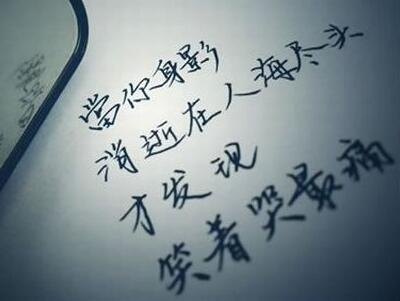 當你身影
消逝在人海尽头
才发现
笑着哭最痛